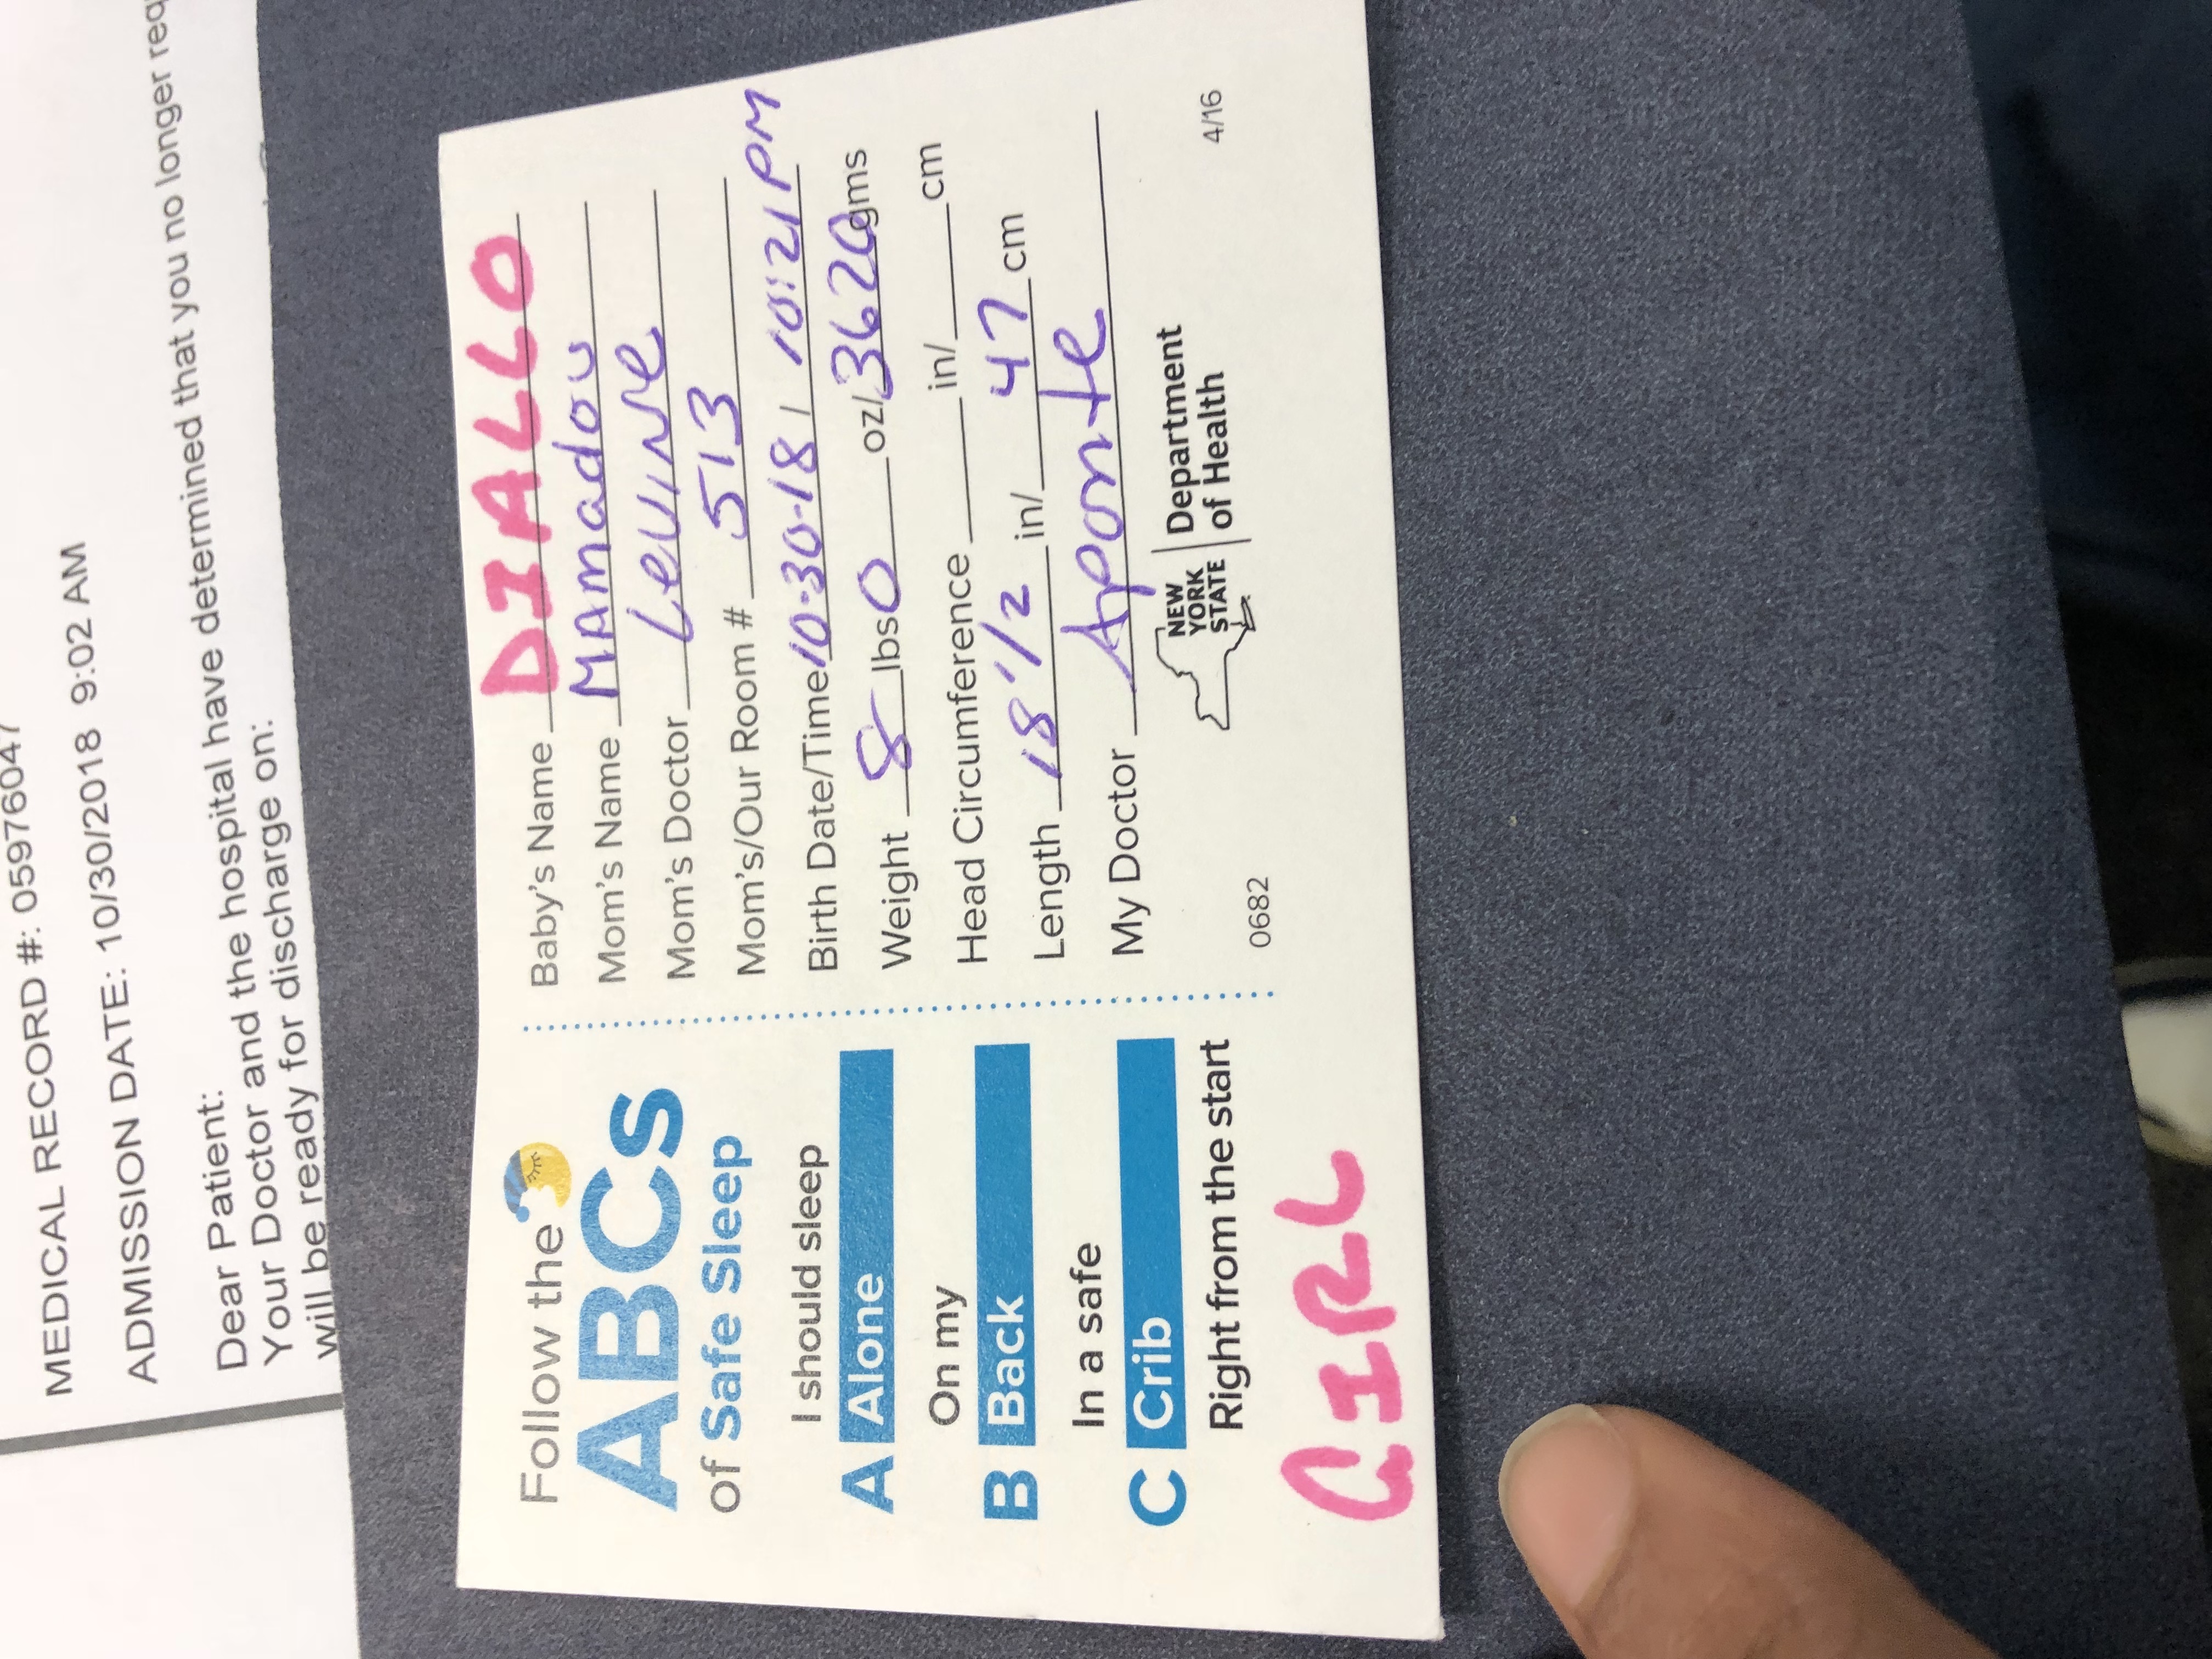 MEDICAL RECORD #: 05976047
ADMISSION DATE: 10/30/2018 9:02 AM
Dear Patient:
Your Doctor and the hospital have determined that you no longer req
will be ready for discharge on:
Follow the
ABCs
of Safe Sleep
I should sleep
A Alone
On my
B Back
In a safe
C Crib
Right from the start
GIRL
Baby's Name DIALLO
Mom's Name MAmadou
Mom's Doctor LeVINe
Mom's/Our Room # 513
Birth Date/Time 10-30-18 / 10:21 PM
Weight 8 lbs 0 oz/ 3620 gms
Head Circumference in/ cm
Length 18 1/2 in/ 47 cm
My Doctor Aponte
NEW
YORK
STATE
Department
of Health
0682
4/16